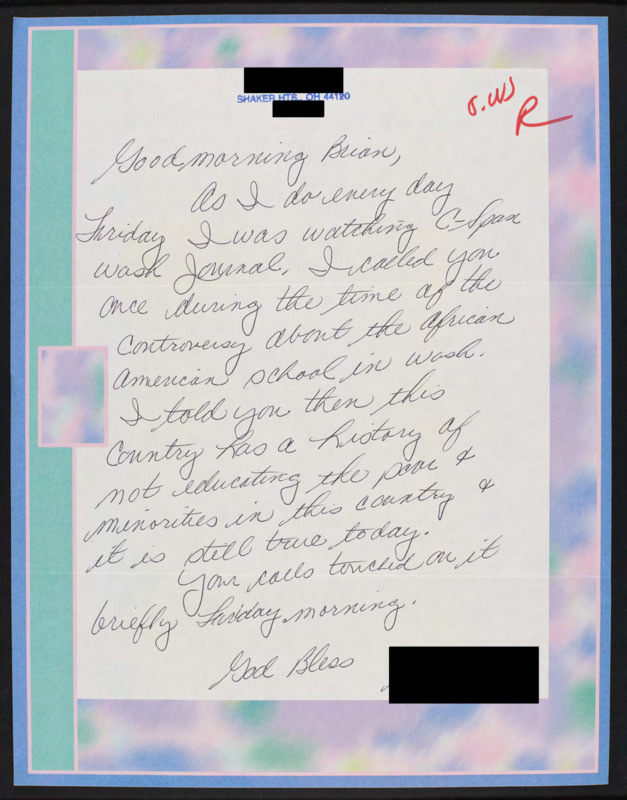 SHAKER HTS., OH 44120
J.W
R
Good morning Brian,
As I do every day
Friday I was watching C-Span
wash Journal. I called you
once during the time of the
controversy about the african
american school in wash.
I told you then this
Country has a history of
not educating the poor &
minorities in this country &
it is still true today.
Your calls touched on it
briefly Friday morning.
God Bless